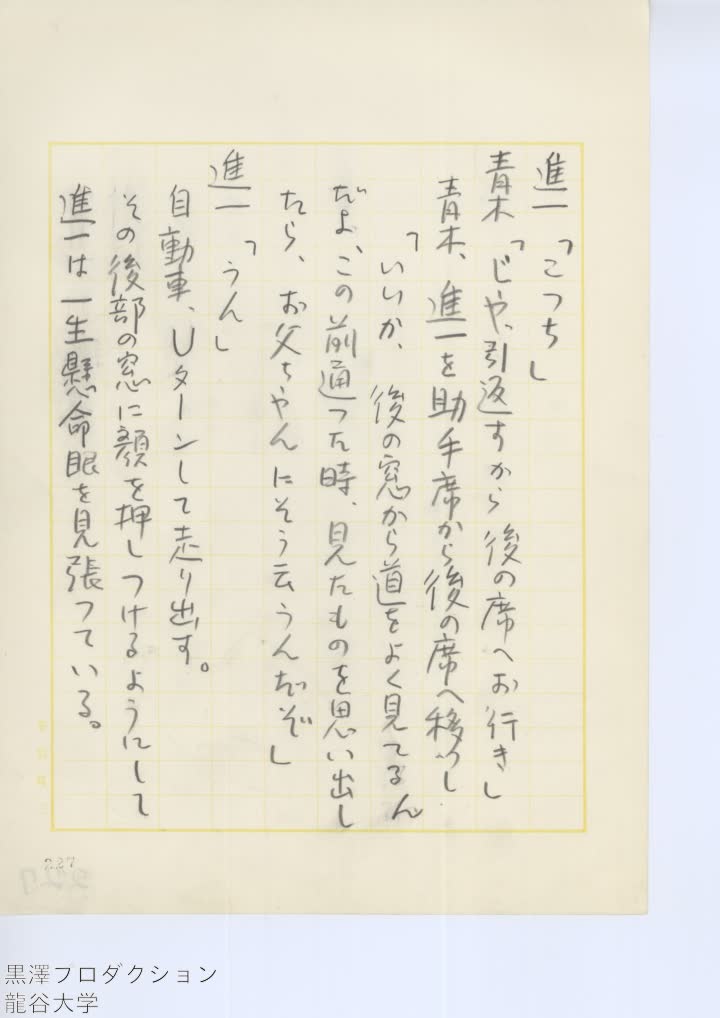 進一「こつち」
青木「じや、引返すから後の席へお行き」
青木、進一を助手席から後の席へ移つし
「いいか、後の窓から道をよく見てるん
だよ、この前通つた時、見たものを思い出し
たら、お父ちやんにそう云うんだぞ」
進一「うん」
自動車、Uターンして走り出す。
その後部の窓に顔を押しつけるようにして
進一は一生懸命眼を見張つている。
227
黒澤プロダクション
龍谷大学